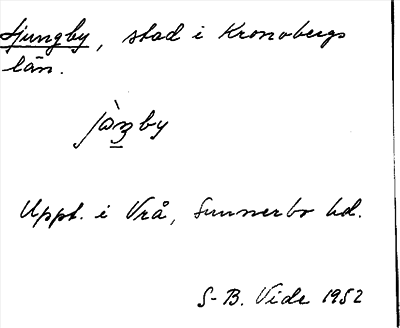 Ljungby, stad i Kronobergs
län.
Uppt. i Vrå, Sunnerbo hd.
S-B. Vide 1952